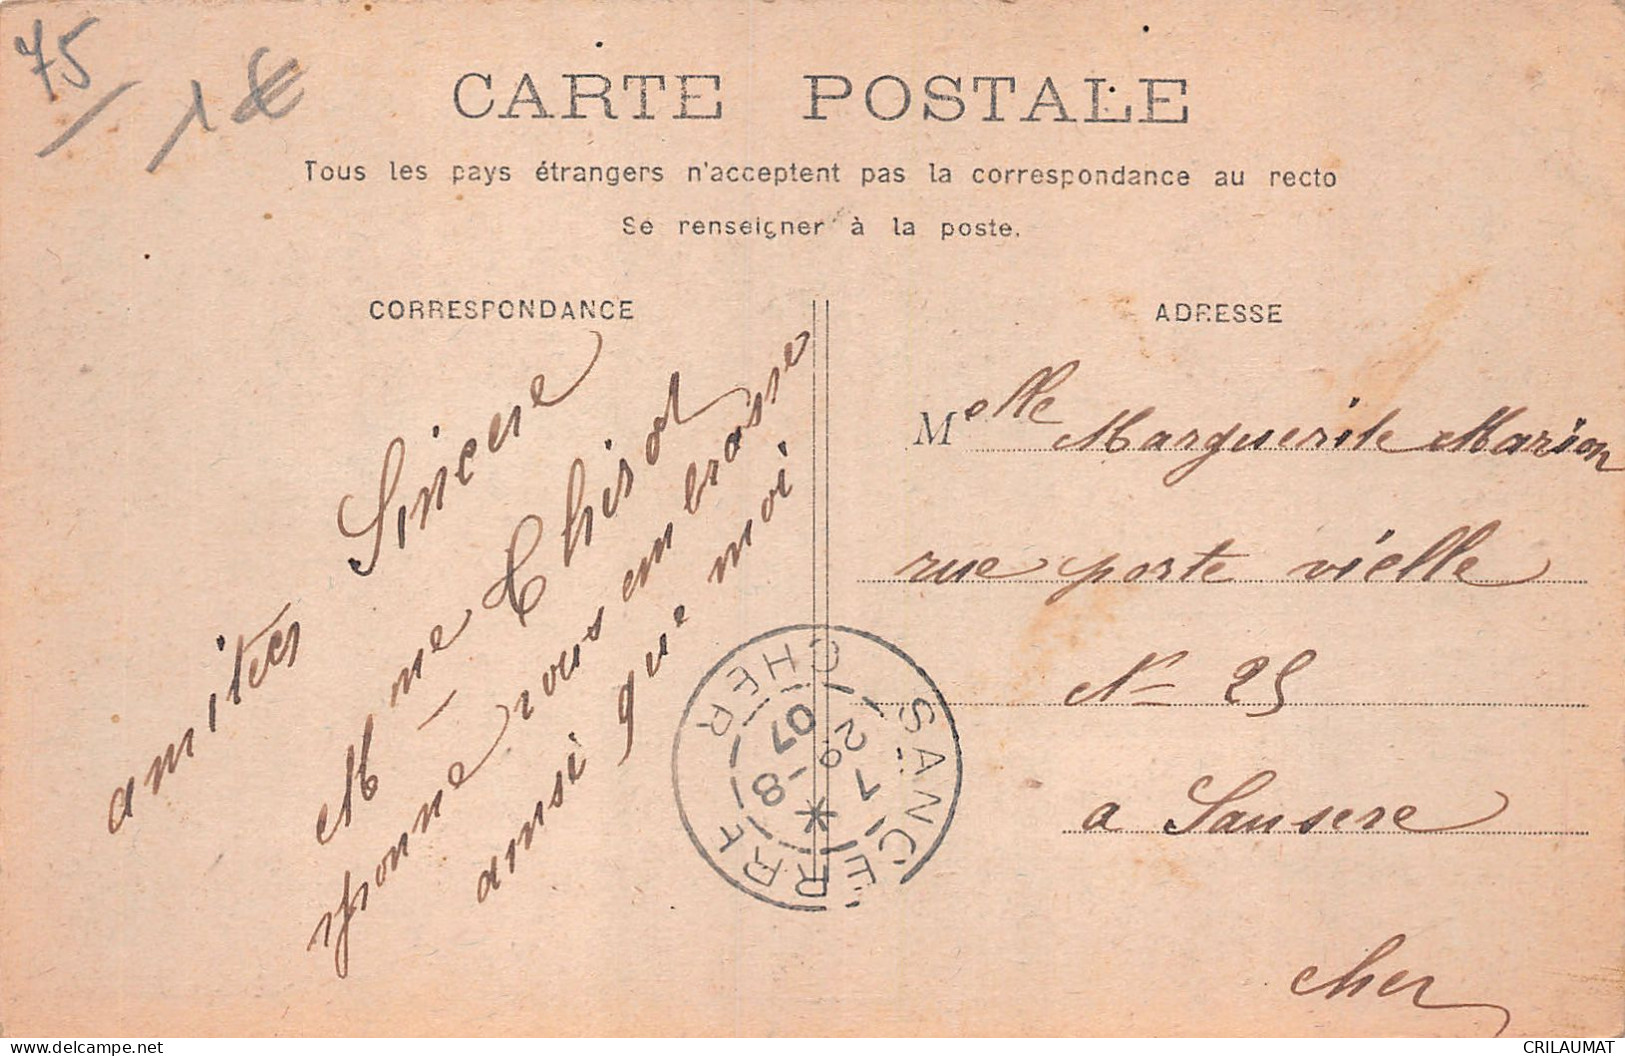 75
1 €
CARTE POSTALE
Tous les pays étrangers n'acceptent pas la correspondance au recto
Se renseigner à la poste.
CORRESPONDANCE
amities Sincere
Mme Thirot
yvonne vous embrasse
ainsi que moi
ADRESSE
Melle Marguerite Marion
rue porte vielle
No 25
a Sansere
cher
SANCERRE
CHER
7
29 -8
07
CRILAUMAT